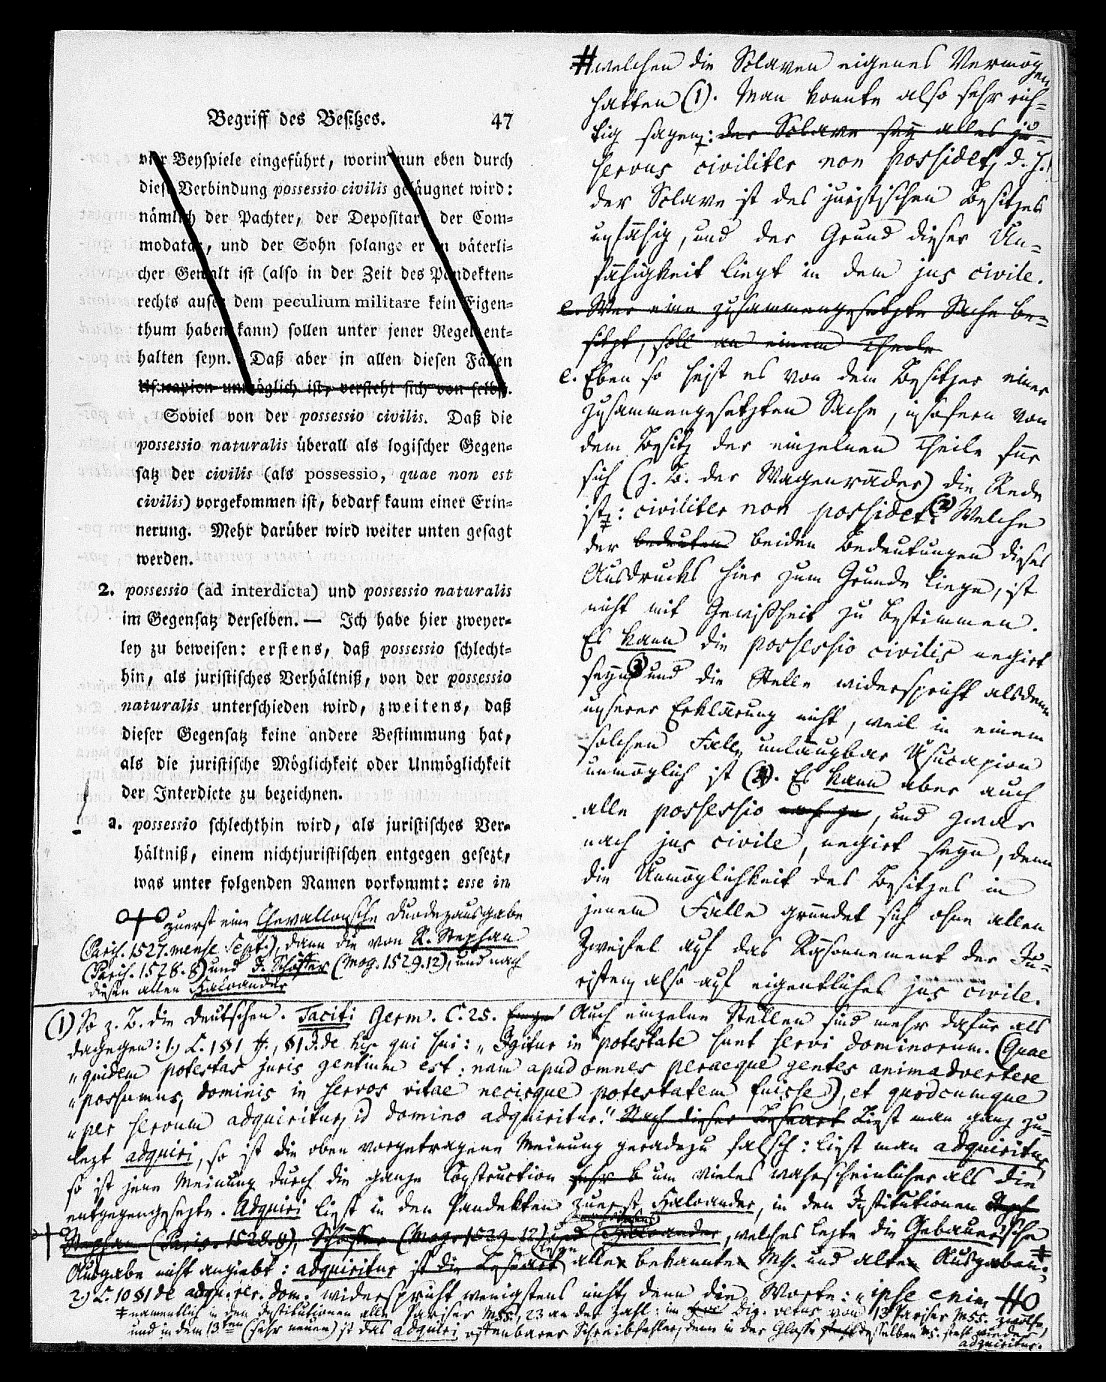 Begriff des Besitzes. 47
vier Beyspiele eingeführt, worin nun eben durch
diese Verbindung possessio civilis geläugnet wird:
nämlich der Pachter, der Depositar, der Com-
modatar, und der Sohn solange er in väterli-
cher Gewalt ist (also in der Zeit des Pandekten-
rechts auser dem peculium militare kein Eigen-
thum haben kann) sollen unter jener Regel ent-
halten seyn. Daß aber in allen diesen Fällen
Usucapion unmöglich ist, versteht sich von selbst.
Soviel von der possessio civilis. Daß die
possessio naturalis überall als logischer Gegen-
satz der civilis (als possessio, quae non est
civilis) vorgekommen ist, bedarf kaum einer Erin-
nerung. Mehr darüber wird weiter unten gesagt
werden.
2. possessio (ad interdicta) und possessio naturalis
im Gegensatz derselben. — Ich habe hier zweyer-
ley zu beweisen: erstens, daß possessio schlecht-
hin, als juristisches Verhältniß, von der possessio
naturalis unterschieden wird, zweitens, daß
dieser Gegensatz keine andere Bestimmung hat,
als die juristische Möglichkeit oder Unmöglichkeit
der Interdicte zu bezeichnen.
a. possessio schlechthin wird, als juristisches Ver-
hältniß, einem nichtjuristischen entgegen gesezt,
was unter folgenden Namen vorkommt: esse in
zuerst eine Chevallonsche Duodezausgabe
(Paris. 1527. mense Sept.), dann die von R. Stephan
(Paris. 1528. 8) und J. Schöffer (Mog. 1529. 12), und nach
diesen allen Haloander
# welchen die Sclaven eigenes Vermögen
hatten (1). Man konnte also sehr rich-
tig sagen: der Sclave sey alles zu
servus civiliter non possidet, d. h.
der Sclave ist des juristischen Besitzes
unfähig, und der Grund dieser Un-
fähigkeit liegt in dem jus civile.
e. Wer eine zusammengesetzte Sache be-
sitzt, soll an einem Theile
e. Eben so heist es von dem Besitzer einer
zusammengesetzten Sache, insofern von
dem Besitz der einzelnen Theile für
sich (z. B. der Wagenräder) die Rede
ist: civiliter non possidet (2). Welche
der bedeuten beiden Bedeutungen dieses
Ausdrucks hier zum Grunde liege, ist
nicht mit Gewißheit zu bestimmen.
Es kann die possessio civilis negirt
seyn (3) und die Stelle widerspricht alsdann
unserer Erklärung nicht, weil in einem
solchen Falle unläugbar Usucapion
unmöglich ist (4). Es kann aber auch
alle possessio, und zwar
nach jus civile, negirt seyn, denn
die Unmöglichkeit des Besitzes in
jenem Falle gründet sich ohne allen
Zweifel auf das Räsonnement der Ju-
risten, also auf eigentliches jus civile.
(1) So z. B. die Deutschen. Taciti Germ. C. 25. Auch einzelne Stellen sind mehr dafür als
dagegen: 1) L. 1 §1 ff., §1 J. de his qui sui: „Igitur in potestate sunt servi dominorum. (Quae
„quidem potestas juris gentium est: nam apud omnes peraeque gentes animadvertere
„possumus, dominis in servos vitae necisque potestatem fuisse), et quodcumque
„per servum adquiritur, id domino adquiritur." Nach dieser Lesart Liest man ganz zu-
lezt adquiri, so ist die oben vorgetragene Meinung geradezu falsch: liest man adquiritur,
so ist jene Meinung durch die ganze Construction um vieles wahrscheinlicher als die
entgegengesetzte. Adquiri liest in den Pandekten zuerst Haloander, in den Institutionen
Stephan (Paris. 1528. 8), Schöffer (Mog. 1529. 12) und Haloander, welches lezte die Gebauersche
Ausgabe nicht angiebt: adquiritur ist die Lesart aller bekannten Mss. und alten Ausgaben;
2) L. 10 §1 de adqu. rer. dom. widerspricht wenigstens nicht, denn die Worte: „ipse enim
namentlich in den Institutionen alle Pariser Mss., 23 an der Zahl: im Dig. vetus von 13 Pariser Mss. zwölfe,
und in dem 13ten (sehr neuen) ist das adquiri offenbarer Schreibfehler, denn in der Glosse desselben Ms. steht wieder
adquiritur.